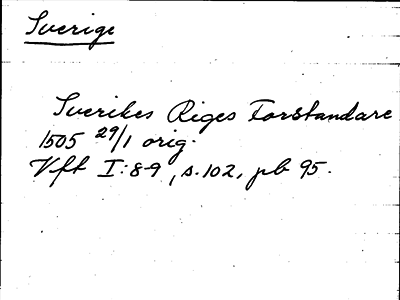 Sverige
Sverikes Riges Forstandare
1505 29/1 orig.
Vft I:8-9, s.102, pb 95.